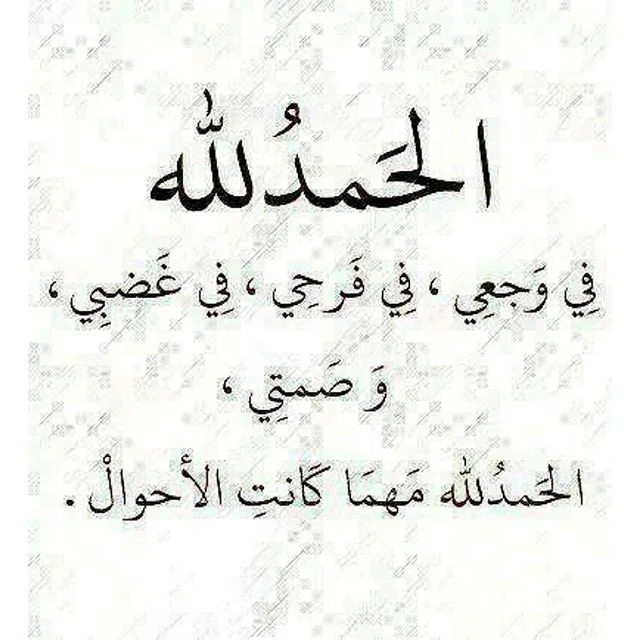 الحَمدُلله
فِي وَجعِي ، فِي فَرحِي ، فِي غَضبِي ،
وَ صَمتِي ،
الحَمدُلله مَهمَا كَانتِ الأحوالْ .